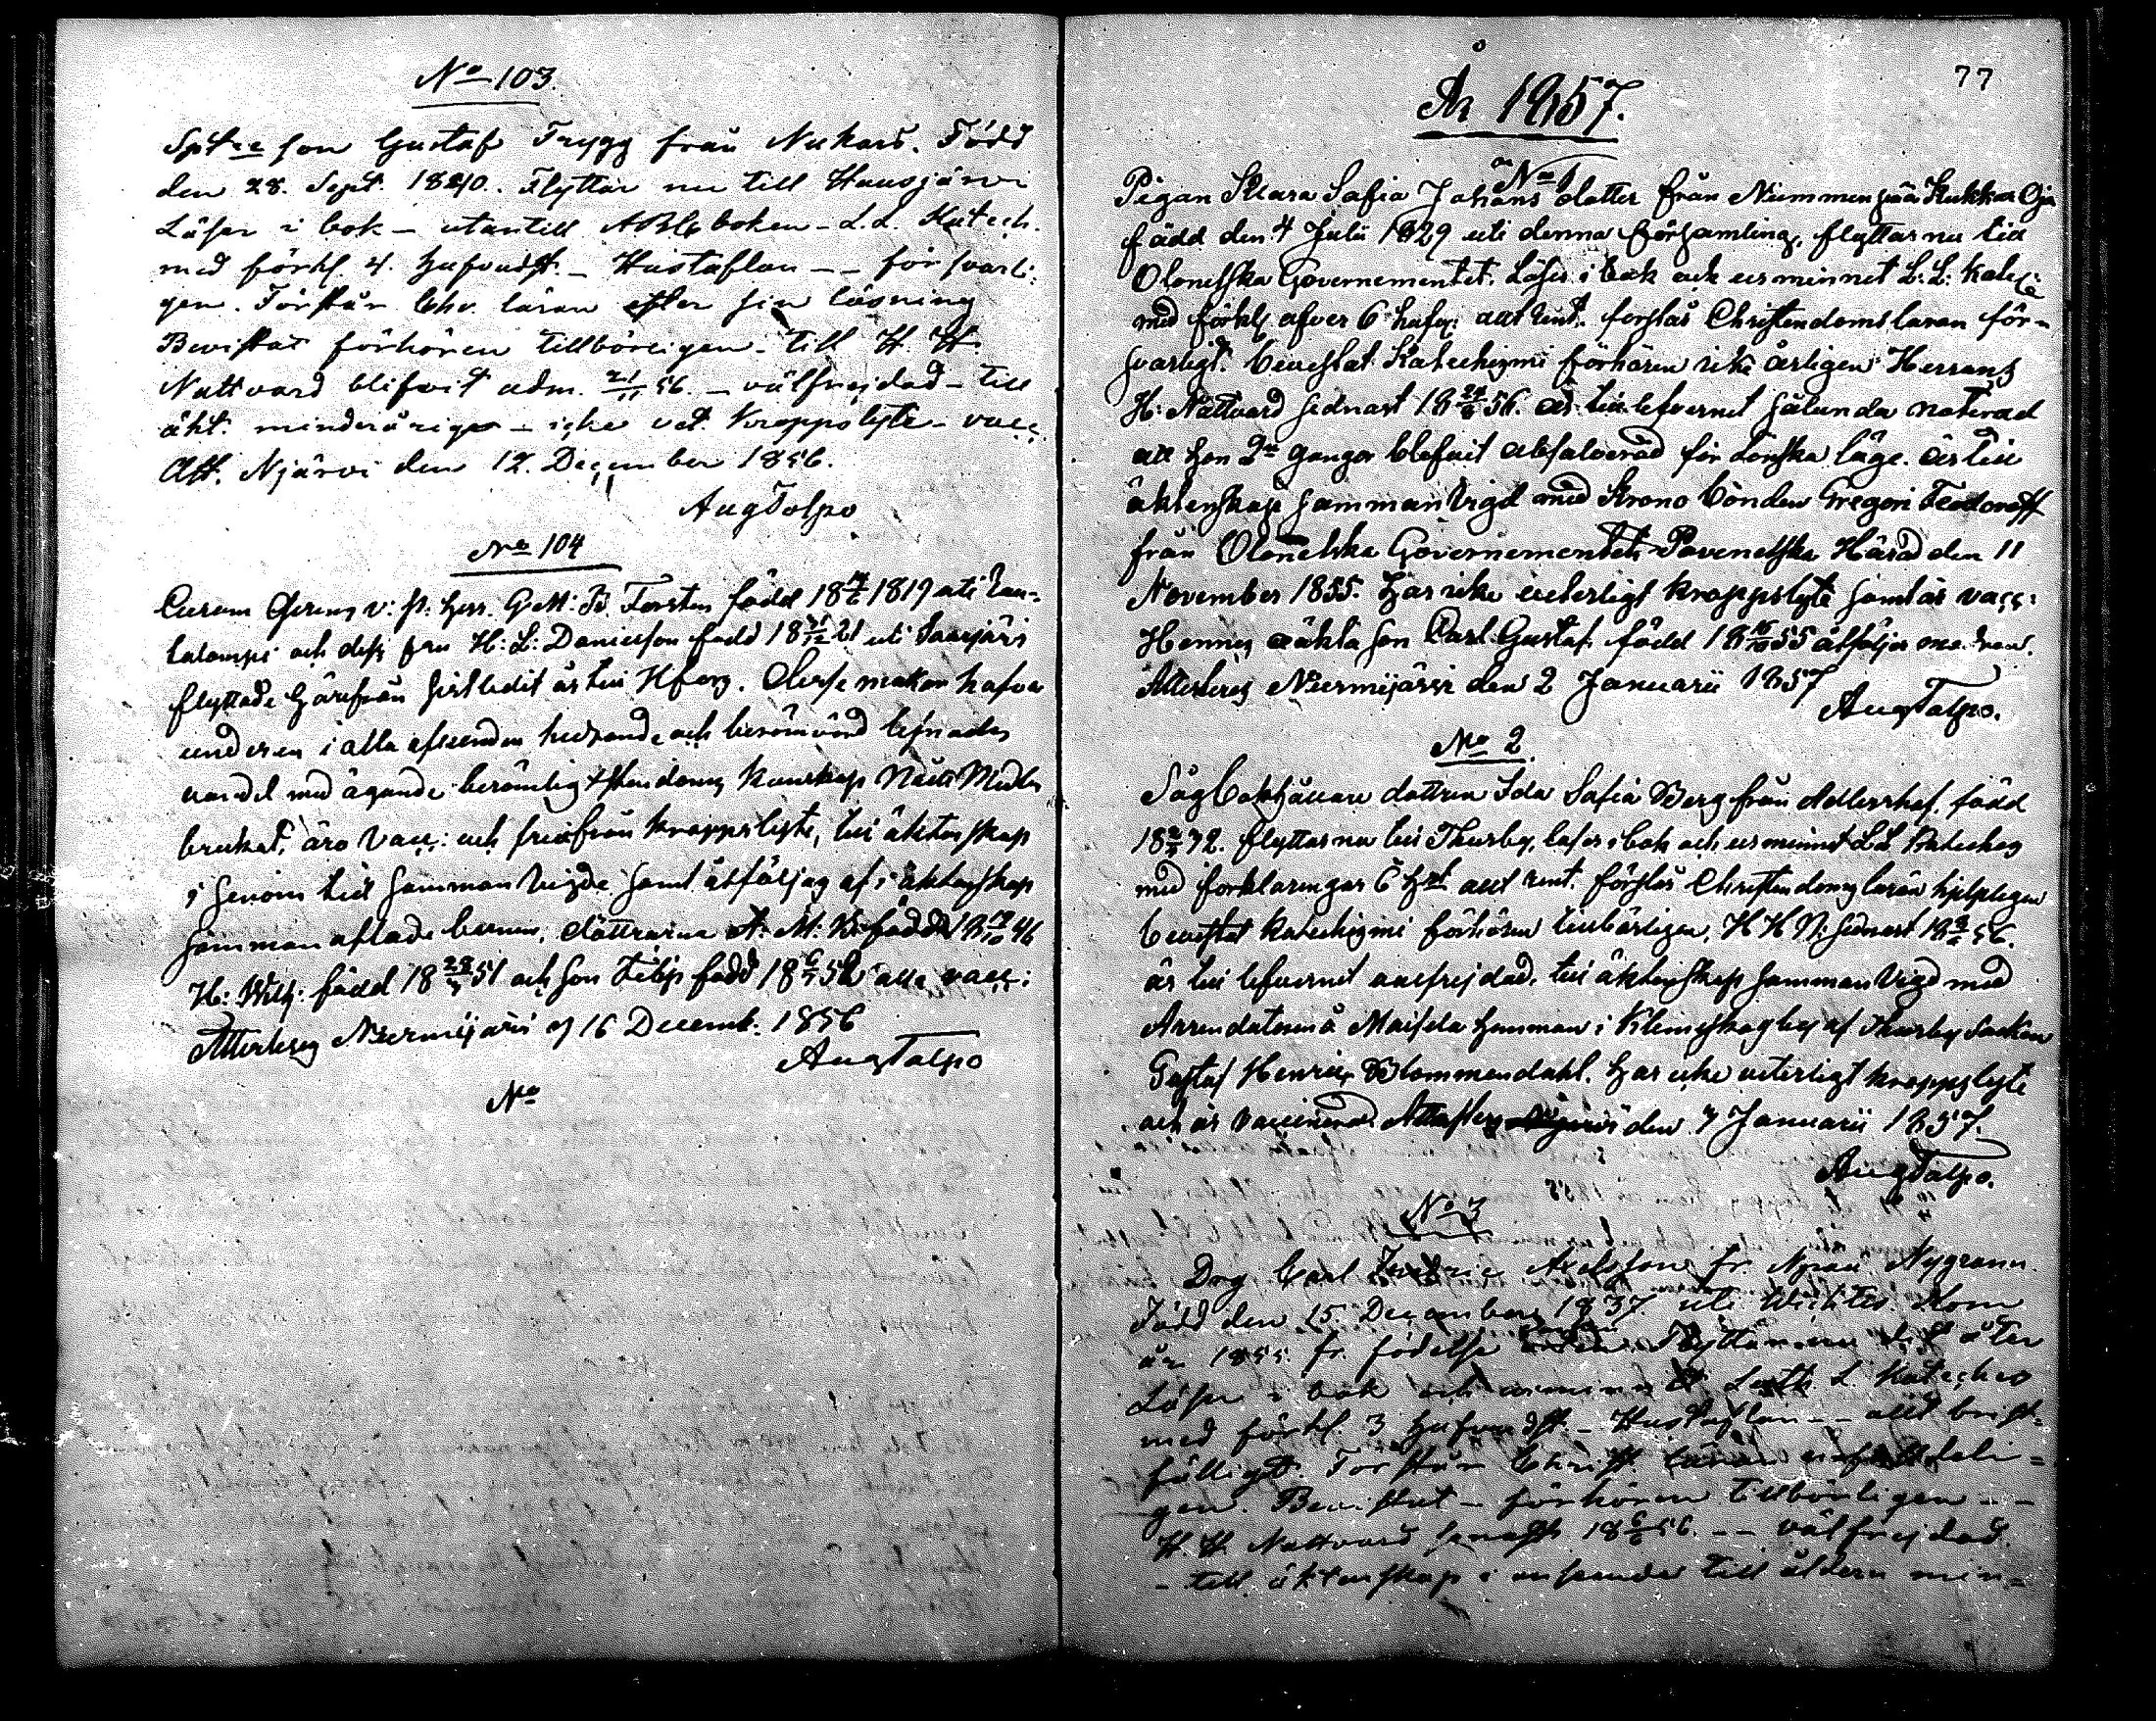 No 103.
Sptre son Gustaf Trygg från Nukars. Född
den 28. Sept. 1840. Flyttar nu till Hausjärvi
Läser i bok – utantill ABC boken – L. L. Katech.
med förkl. 4. hufvudst. – Hustaflan – – försvarli:
gen. Förstår Chr. läran efter sin läsning
Bevistat förhören tillbörligen – till H. H.
Nattvard blifvit adm. 56. – välfrejdad – till
äkt. minderårig – icke vet. kroppslyte – vacc.
Att. Njärvi den 12. December 1856.
Aug Talpo
No 104
född 1819 uti
och dess fru H: L: Danielson född 18 21 uti
flyttade härifrån till
under en i alla afseenden hedrande och berömvärd lefnads
vandel med ägande berömlig Kunskap Nåde Medlen
brukat, äro vacc: och fria från kroppslyte, till äktenskap
genom tid sammanvigde samt åtföljas af i äktenskap
sammanaflade barnen, döttrarna A: M: född 18 46
H: Wilh: född 18 28 51 och son Filip född 18 alla vacc:
Attesteras Nurmijärvi af 16 Decemb. 1856
Aug Talpo
No
77
År 1857.
No 1
Pigan Klara Sofia Johans dotter från Nummenpää
född den 4 Julii 1829 uti denna församling, flyttar nu till
Olonetska Governementet. Läser i bok och ur minnet L: L: Kateches
med förkl öfver 6 hufv: allt rent. förstår Christendomsläran för-
svarligt. bevistat Katechizmi förhören icke årligen Herrans
H: Nattvard sednast 18 24/6 56. är till lefvernet sålunda noterad
att hon 2ne gånger blefvit absolverad för Lönska läge. är till
äktenskap sammanvigd med Krono bonden Gregori Feodoroff
från Olonetska Governementets Povenetska Härad den 11
November 1855. har icke veterligt kroppslyte samt är vacc:
Hennes oäkta son Carl Gustaf född 18 55 åtföljer modren.
Attesteras Nurmijärvi den 2 Januarii 1857
Aug Talpo.
No 2.
dottren Ida Sofia Berg från Adlershof. född
18 32. flyttar nu till Thusby, läser i bok och ur minnet L L Kateches
med förklaringar 6 hst allt rent. förstår Christendoms läran hjelpligen
bevistat Katechizmi förhören tillbörligen, H H N: sednast 18 56.
är till lefvernet välfrejdad, till äktenskap sammanvigd med
Arrendatorn å Maisela hemman i Klemetskog by af Thusby Socken
Gustaf Henric Blommendahl. har icke veterligt kroppslyte
och är vaccinerad Attesteras den 7 Januarii 1857.
Aug Talpo.
No 3
Drg Carl Fredric Axelsson fr. Npää Nygrann
Född den 15. December 1837 uti Wichtis. Kom
år 1855. fr. födelse Flyttar nu dit åter
Läser i bok och ur minnet L. Kateches
med förkl. 3 hufvudst. – Hustaflan – – allt brist-
fälligt. Förstår Christ. läran
gen. Bevistat – förhören tillbörligen – –
H. H. Nattvard senast 18 6/6 56. – – välfrejdad.
– till äktenskap i anseende till åldern min-